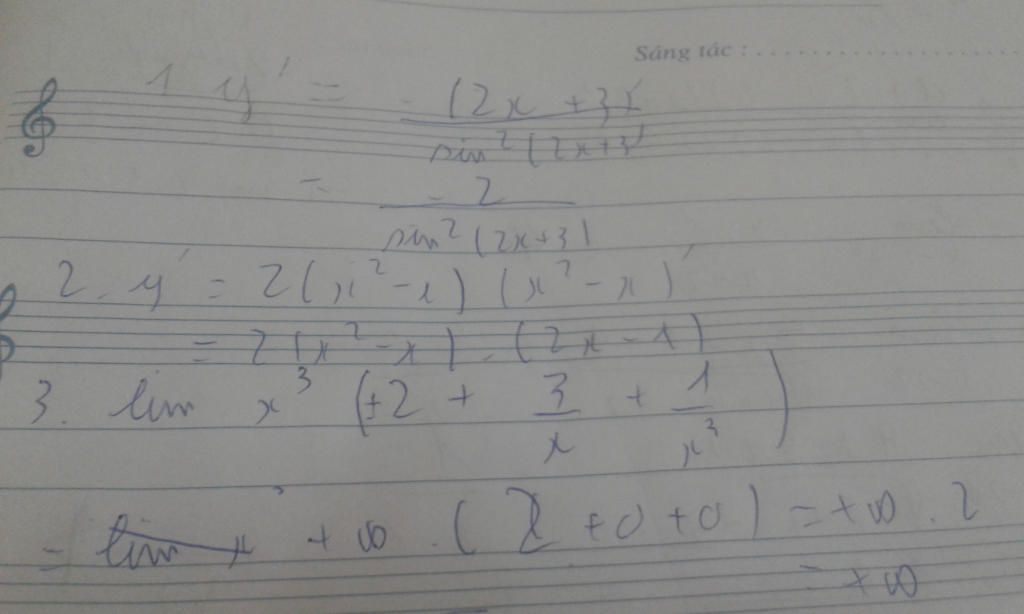 Sáng tác : ....................
1 y' = -(2x + 3)' / sin²(2x+3)
= -2 / sin²(2x+3)
2. y' = 2(x² - x) (x² - x)'
= 2(x² - x) . (2x - 1)
3. lim x³ (±2 + 3/x + 1/x³)
= lim x +∞ . (2 + 0 + 0) = +∞ . 2
= +∞